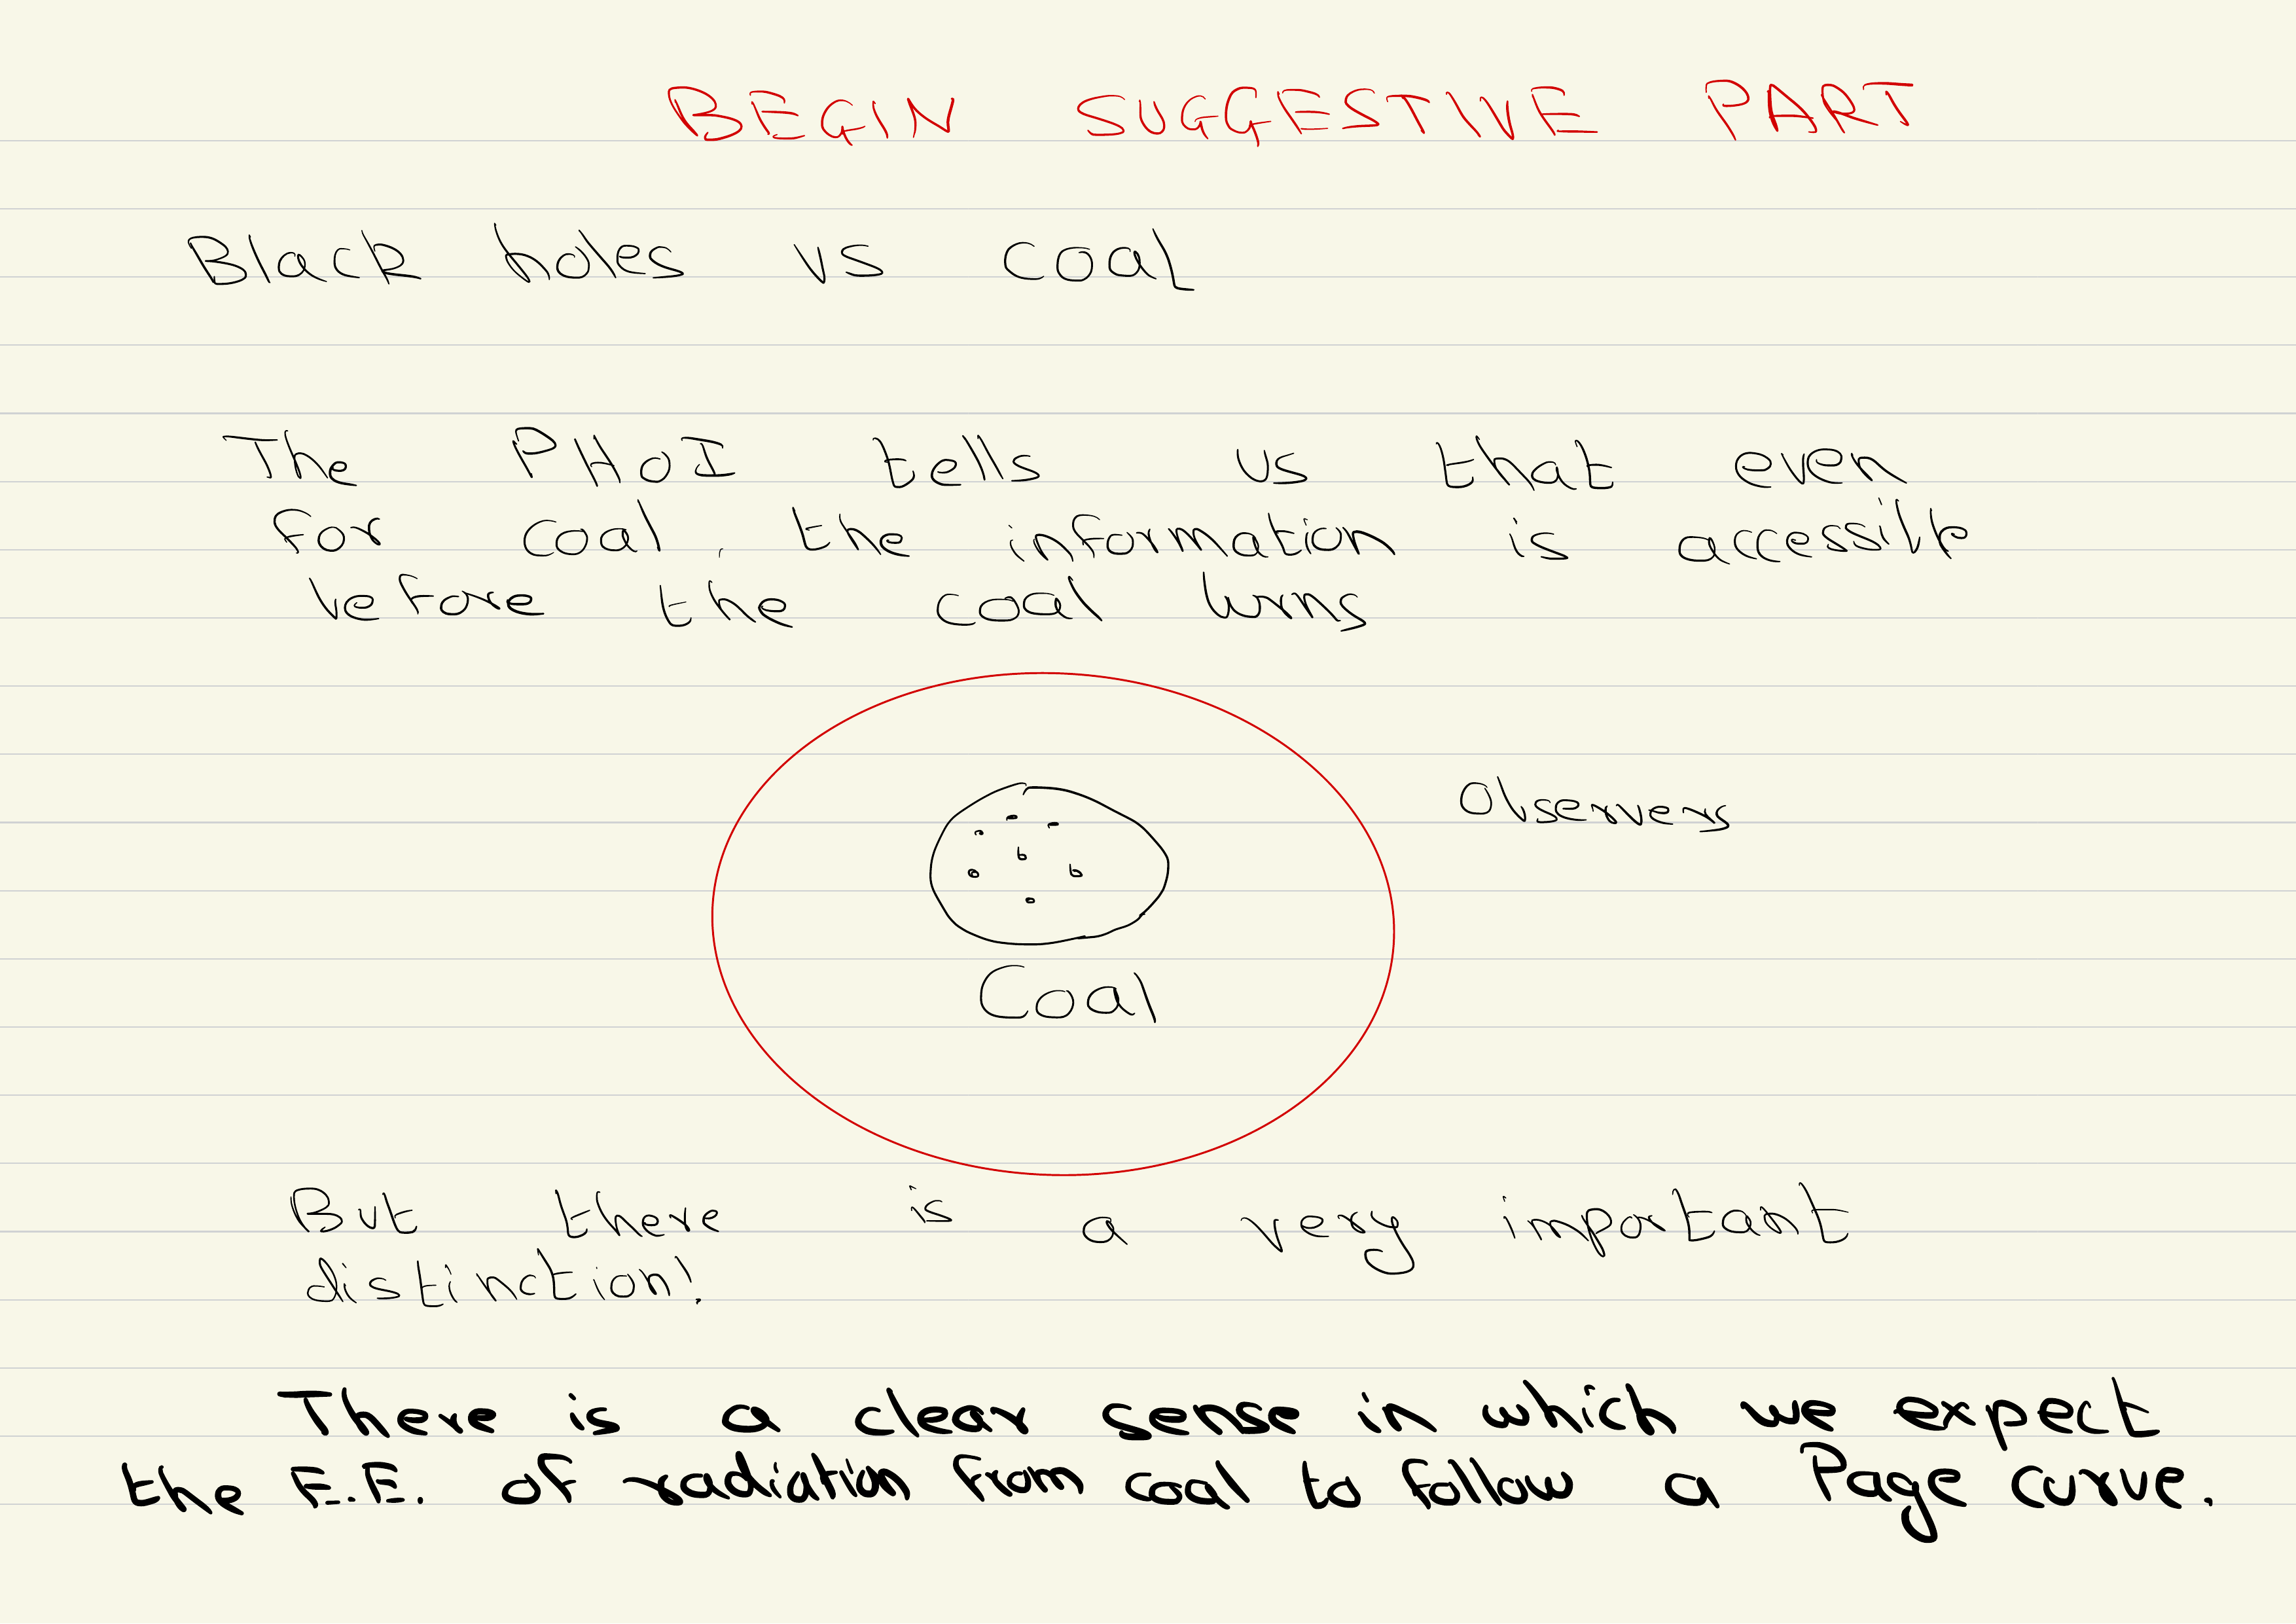 BEGIN SUGGESTIVE PART
Black holes vs coal
The PHoI tells us that even
for coal, the information is accessible
before the coal burns
Observers
Coal
But there is a very important
distinction!
There is a clear sense in which we expect
the E.E. of radiation from coal to follow a Page curve.